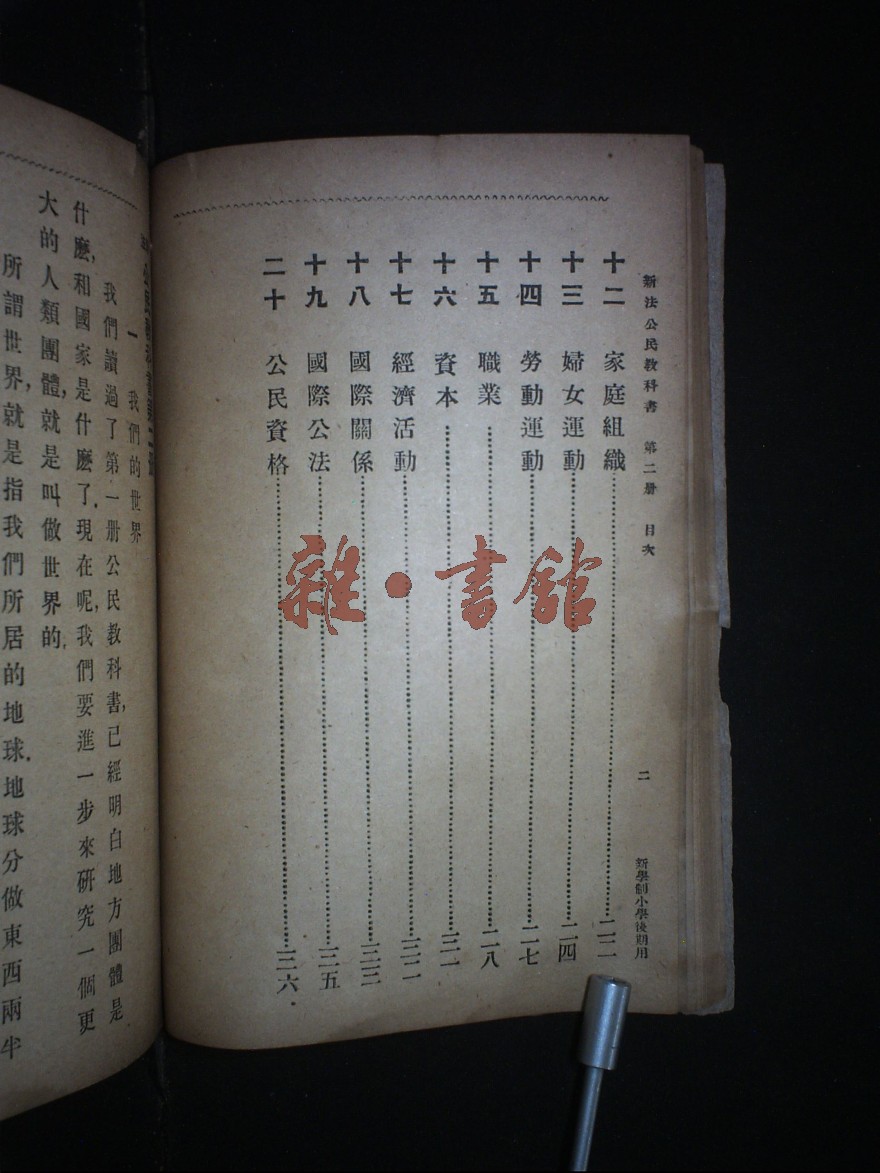 新法公民教科書　第二册　目次　二　新學制小學後期用
十二　家庭組織……二二
十三　婦女運動……二四
十四　勞動運動……二七
十五　職業……二八
十六　資本……三一
十七　經濟活動……三二
十八　國際關係……三三
十九　國際公法……三五
二十　公民資格……三六
雜·書館
一　我們的世界
我們讀過了第一册公民教科書,已經明白地方團體是
什麽,和國家是什麽了.現在呢,我們要進一步來研究一個更
大的人類團體,就是叫做世界的.
所謂世界,就是指我們所居的地球.地球分做東西兩半